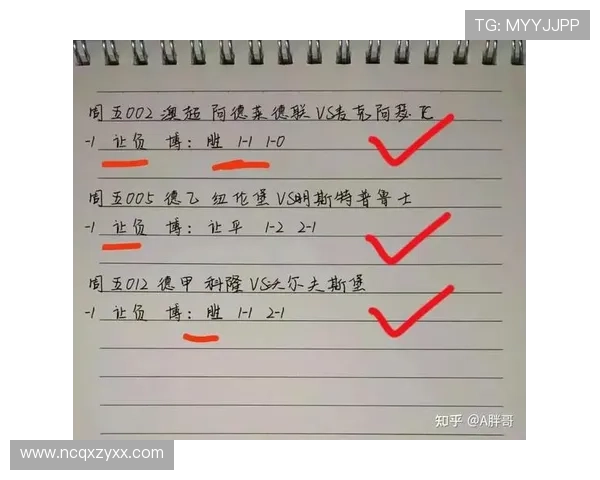 TG: MYYJJPP
周五002 澳超 阿德莱德联VS麦克阿瑟FC
-1 让负 博: 胜 1-1 1-0
周五005 德乙 纽伦堡VS明斯特普鲁士
-1 让负 博: 让平 1-2 2-1
周五012 德甲 科隆VS沃尔夫斯堡
-1 让负 博: 胜 1-1 2-1
知乎 @A胖哥
www.ncqxzyxx.com